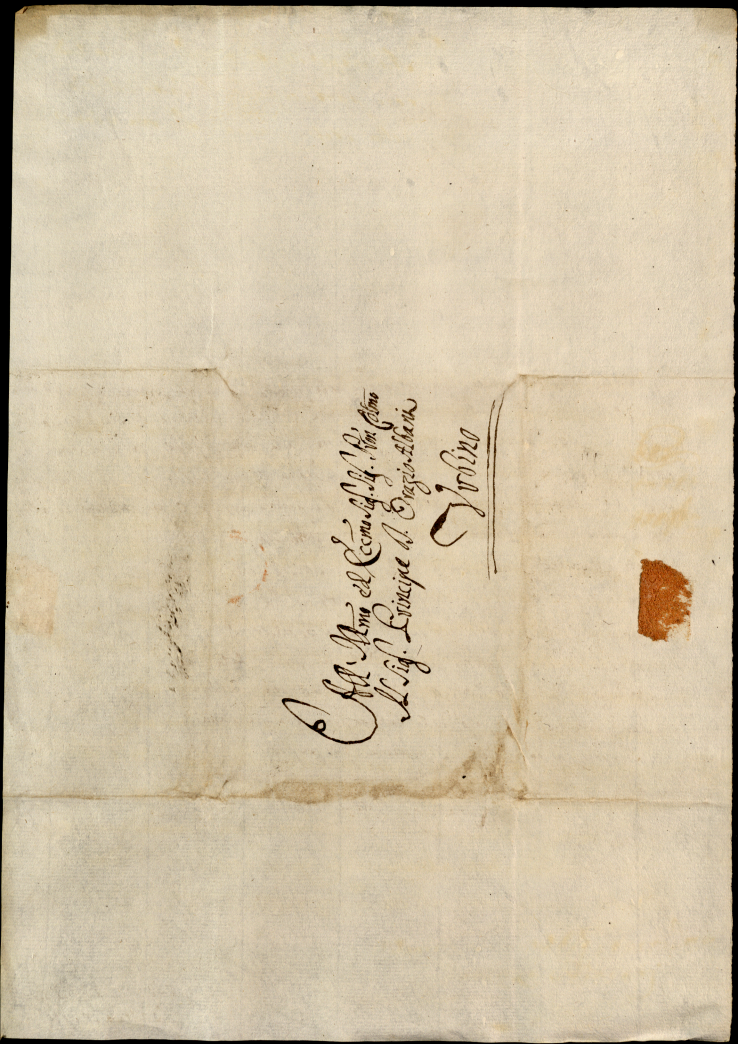 All' Ill.mo ed Ecc.mo Sig.r Sig.r Pron Colmo
Il Sig.r Principe D. Orazio Albani
Urbino